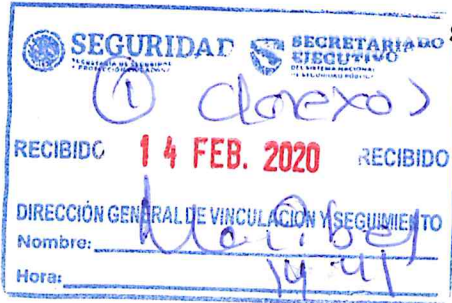 SEGURIDAD
SECRETARÍA DE SEGURIDAD
Y PROTECCIÓN CIUDADANA
SECRETARIADO
EJECUTIVO
DEL SISTEMA NACIONAL
DE SEGURIDAD PÚBLICA
① anexos
RECIBIDO 14 FEB. 2020 RECIBIDO
DIRECCIÓN GENERAL DE VINCULACIÓN Y SEGUIMIENTO
Nombre: Maribel
Hora: 14:41